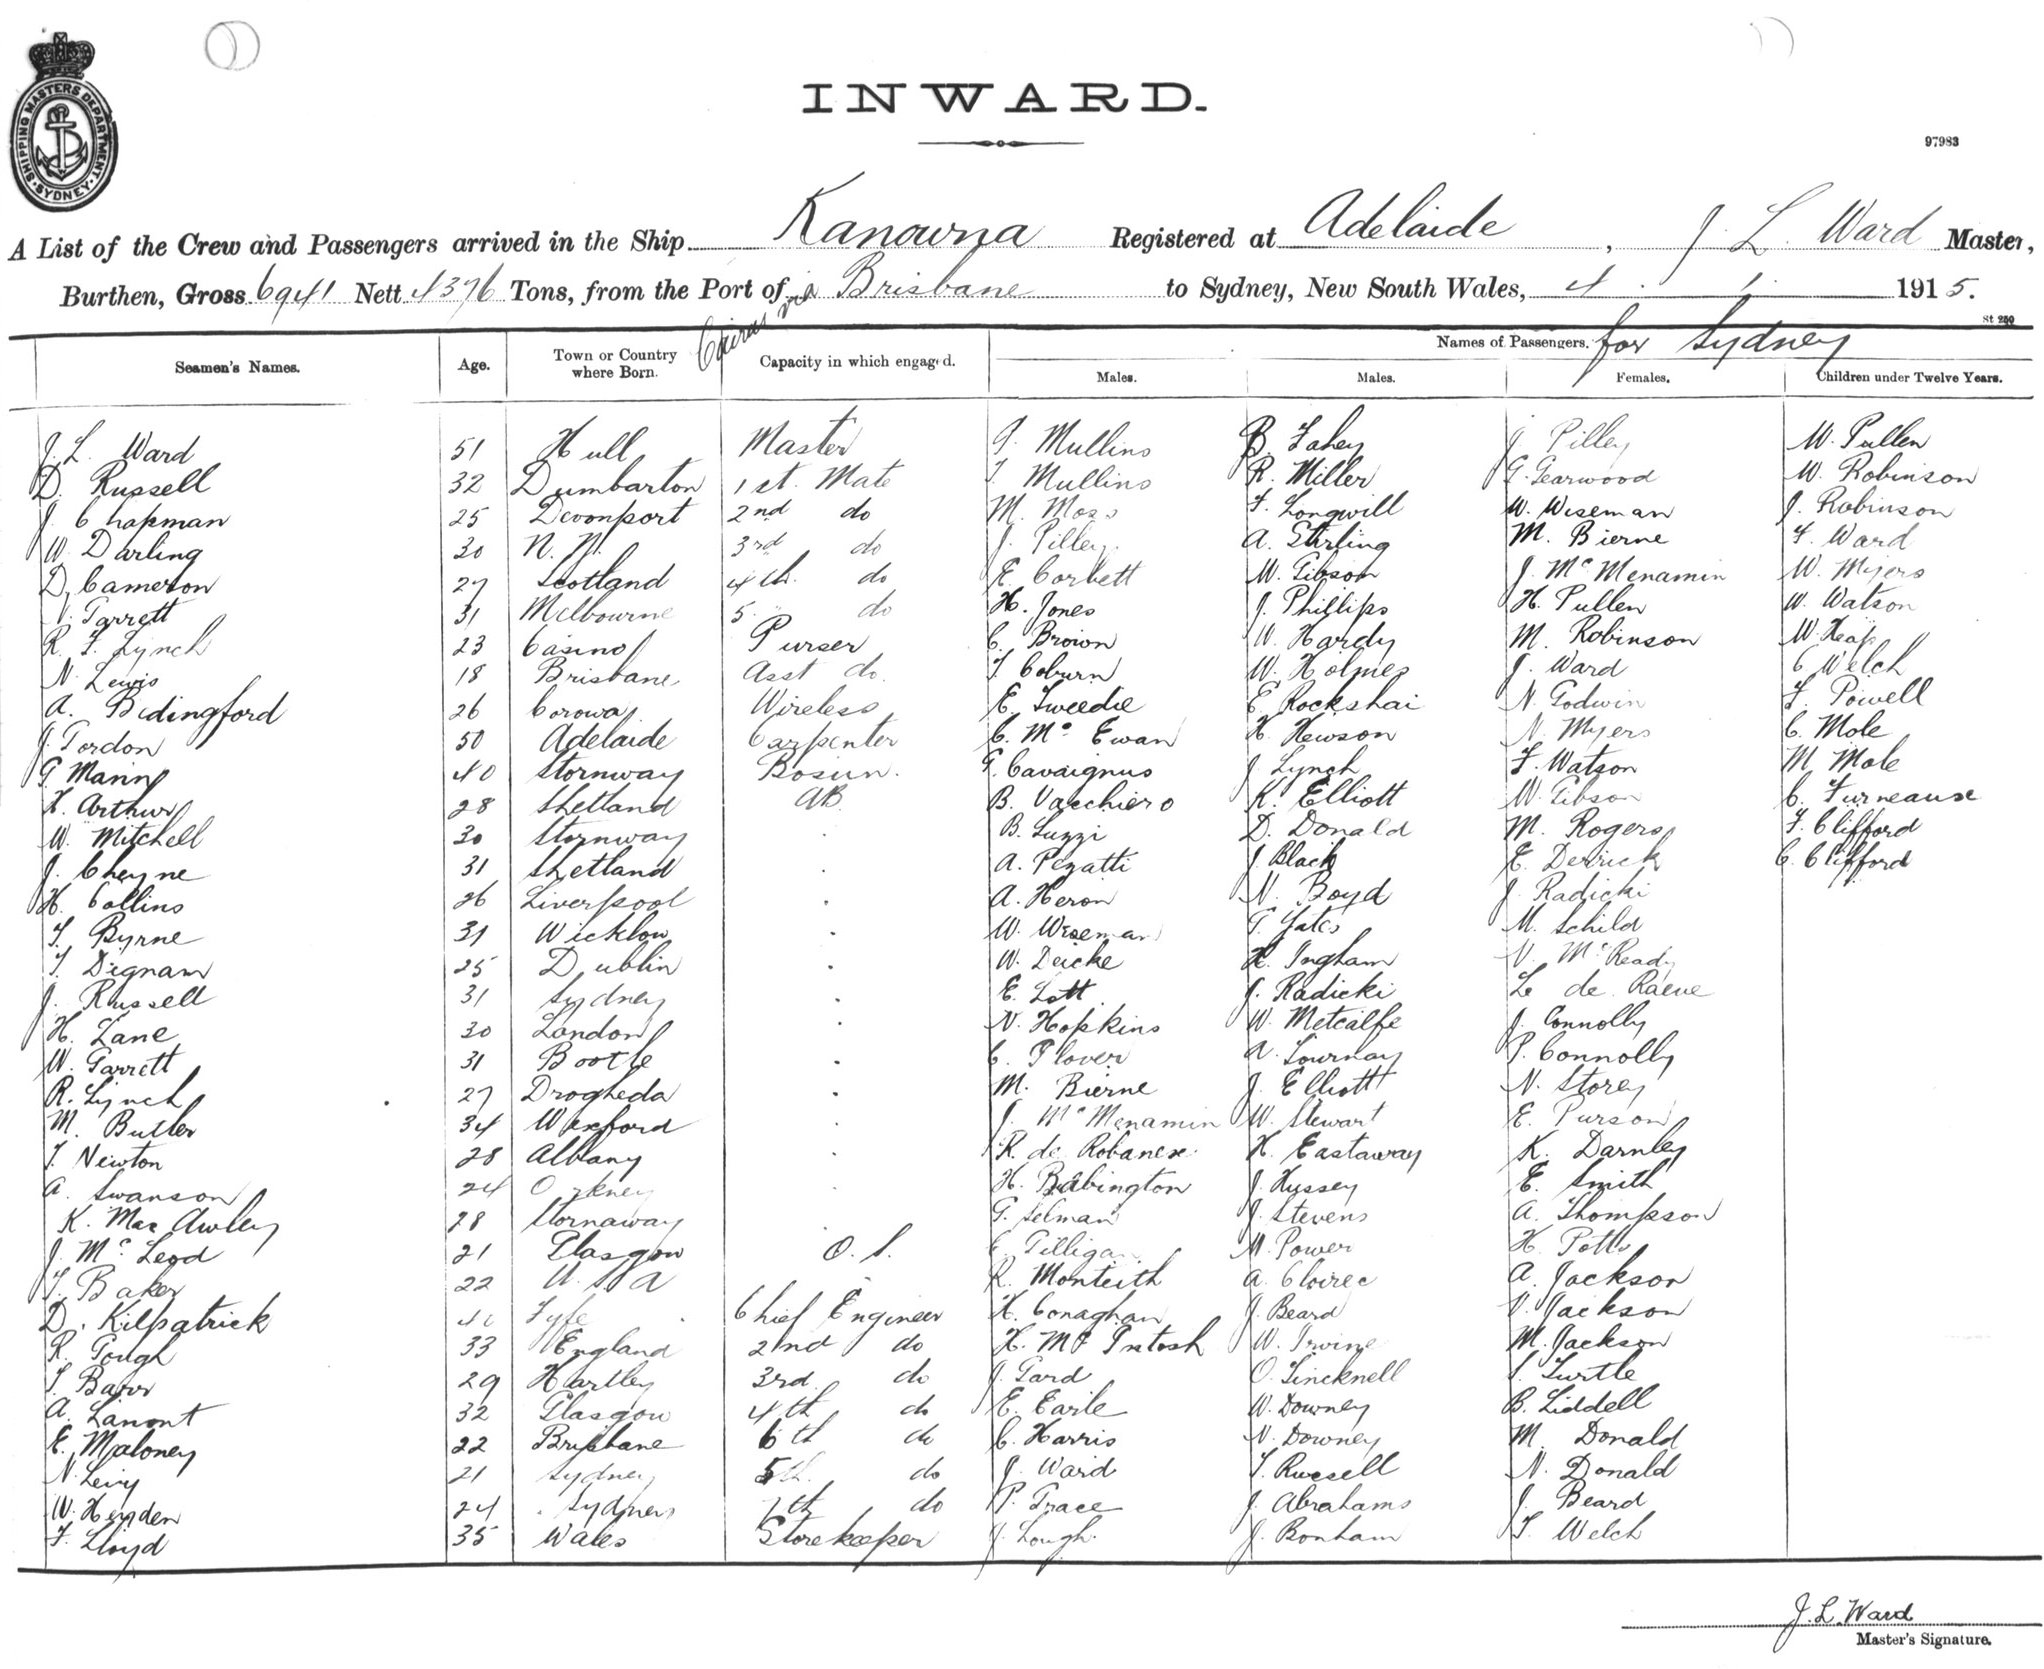 SHIPPING MASTERS DEPARTMENT. SYDNEY
INWARD.
97983
A List of the Crew and Passengers arrived in the Ship Kanowna Registered at Adelaide, J. L. Ward Master,
Burthen, Gross 6941 Nett 4376 Tons, from the Port of Cairns via Brisbane to Sydney, New South Wales, 4 . 1 . 1915.
St 250
Names of Passengers. for Sydney
Seamen's Names. Age. Town or Country where Born. Capacity in which engaged. Males. Males. Females. Children under Twelve Years.
J. L. Ward 51 Hull Master Mullins B. Fahey J. Pilley W. Pullen
D. Russell 32 Dumbarton 1st. Mate Mullins R. Miller G. Gearwood W. Robinson
J. Chapman 25 Devonport 2nd do M. Moss F. Longwill W. Wiseman J. Robinson
W. Darling 30 N. Z. 3rd do J. Pilley A. Stirling M. Bierne F. Ward
D. Cameron 27 Scotland 4th. do E. Corbett W. Gibson J. Mc Menamin W. Myers
Garrett 31 Melbourne 5 do H. Jones J. Phillips H. Pullen W. Watson
R. F. Lynch 23 Casino Purser C. Brown W. Hardy M. Robinson W. Heap
N. Lewis 18 Brisbane Asst do. T. Coburn W. Holmes J. Ward C Welch
A. Bidingford 26 Corowa Wireless E. Tweedie E. Rockshai N. Godwin F. Powell
J. Gordon 50 Adelaide Carpenter C. Mc Ewan H. Hewson N. Myers C. Mole
G Mann 40 Stornway Bosun. G. Cavaignus J. Lynch F. Watson M Mole
H. Arthur 28 Shetland AB B. Vacchiero K. Elliott W. Gibson C. Furneause
W. Mitchell 30 Stornway B. Luzzi D. Donald M. Rogers F. Clifford
J. Cheyne 31 Shetland A. Pezatti J. Black E. Derrick C. Clifford
H. Collins 26 Liverpool A. Heron N. Boyd J. Radicki
T. Byrne 31 Wicklow W. Wiseman G. Yates M. Schild
T. Dignam 25 Dublin W. Deicke H. Ingham V. McReady
J. Russell 31 Sydney E. Lott J. Radicki L de Raeve
H. Lane 30 London N. Hopkins W. Metcalfe J. Connolly
W. Garrett 31 Bootle C. Plover A. Tournay P. Connolly
R. Lynch 27 Drogheda M. Bierne J. Elliott N. Storey
M. Butler 34 Wexford J. Mc Menamin W. Stewart E. Purson
T. Newton 28 Albany R. de Robanese H. Eastaway K. Darnley
A. Swanson 24 Orkney H. Babington J. Hussey E. Smith
K. Mac Awley 28 Stornaway G. Selman J. Stevens A. Thompson
J. Mc Leod 21 Glasgow O. S. Gilligan M. Power H. Potts
T. Baker 22 U. S. A R. Monteith A. Cloirec A. Jackson
D. Kilpatrick Fyfe Chief Engineer H. Conaghan J. Beard V. Jackson
R. Gough 33 England 2nd do H. Mc Intosh W. Irvine M. Jackson
T. Barr 29 Hartley 3rd. do J. Gard O. Lincknell Turtle
A. Lamont 32 Glasgow 4th do E. Earle W. Downey B. Liddell
E. Maloney 22 Brisbane 6th do C. Harris N. Downey M. Donald
N. Levy 21 Sydney 5th. do J. Ward T. Russell N. Donald
W. Heyden 24 Sydney 7th do P. Grace J. Abrahams J. Beard
F. Lloyd 35 Wales Storekeeper J. Lough. J. Bonham T. Welch
J. L. Ward
Master's Signature.